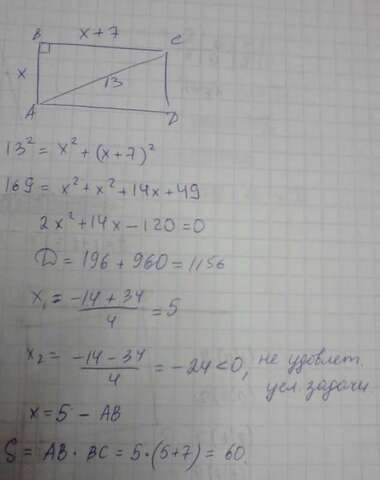 B x+7 C
x 13
A D
13² = x² + (x+7)²
169 = x² + x² + 14x + 49
2x² + 14x - 120 = 0
D = 196 + 960 = 1156
x₁ = (-14 + 34)/4 = 5
x₂ = (-14 - 34)/4 = -24 < 0, не удовлет.
усл. задачи
x = 5 - AB
S = AB · BC = 5 · (5+7) = 60.